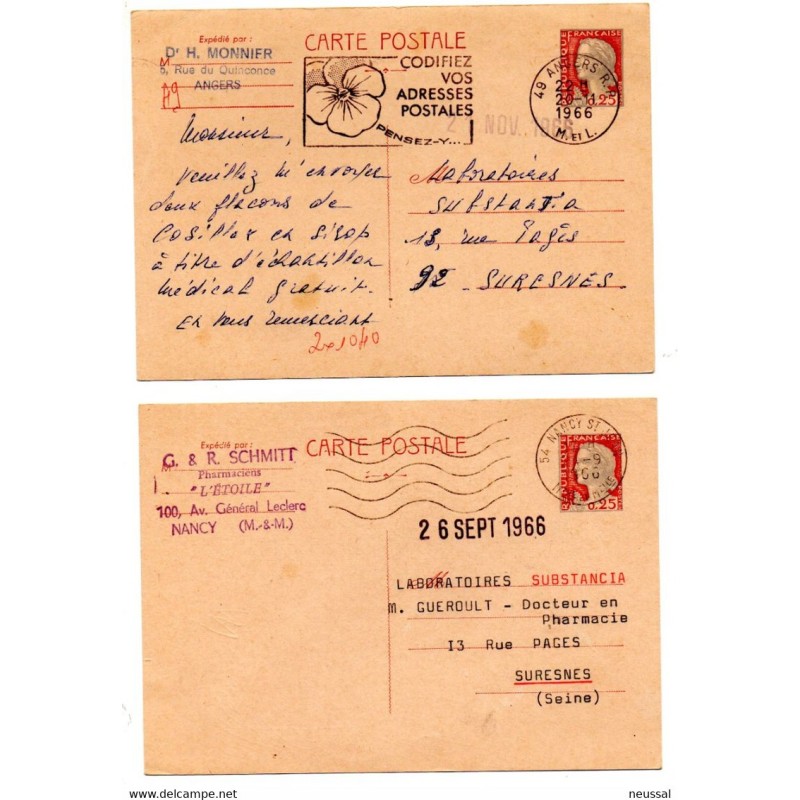 Expédié par :
Dr H. MONNIER
6, Rue du Quinconce
ANGERS
CARTE POSTALE
CODIFIEZ
VOS
ADRESSES
POSTALES
PENSEZ-Y...
49 ANGERS R.P.
20-11
1966
M. ET L.
RÉPUBLIQUE FRANÇAISE
0,25
2 NOV. 1966
Monsieur,
Veuillez m'envoyer
deux flacons de
en sirop
à titre d'échantillon
médical gratuit.
En vous remerciant
2x1040
Laboratoires
SUBSTANTIA
13, rue Pagès
92 SURESNES
Expédié par :
G. & R. SCHMITT
Pharmaciens
"L'ÉTOILE"
100, Av. Général Leclerc
NANCY (M.-&-M.)
CARTE POSTALE
54 NANCY ST
RÉPUBLIQUE FRANÇAISE
0,25
26 SEPT 1966
LABORATOIRES SUBSTANCIA
M. GUEROULT - Docteur en
Pharmacie
I3 Rue PAGES
SURESNES
(Seine)
www.delcampe.net
neussal